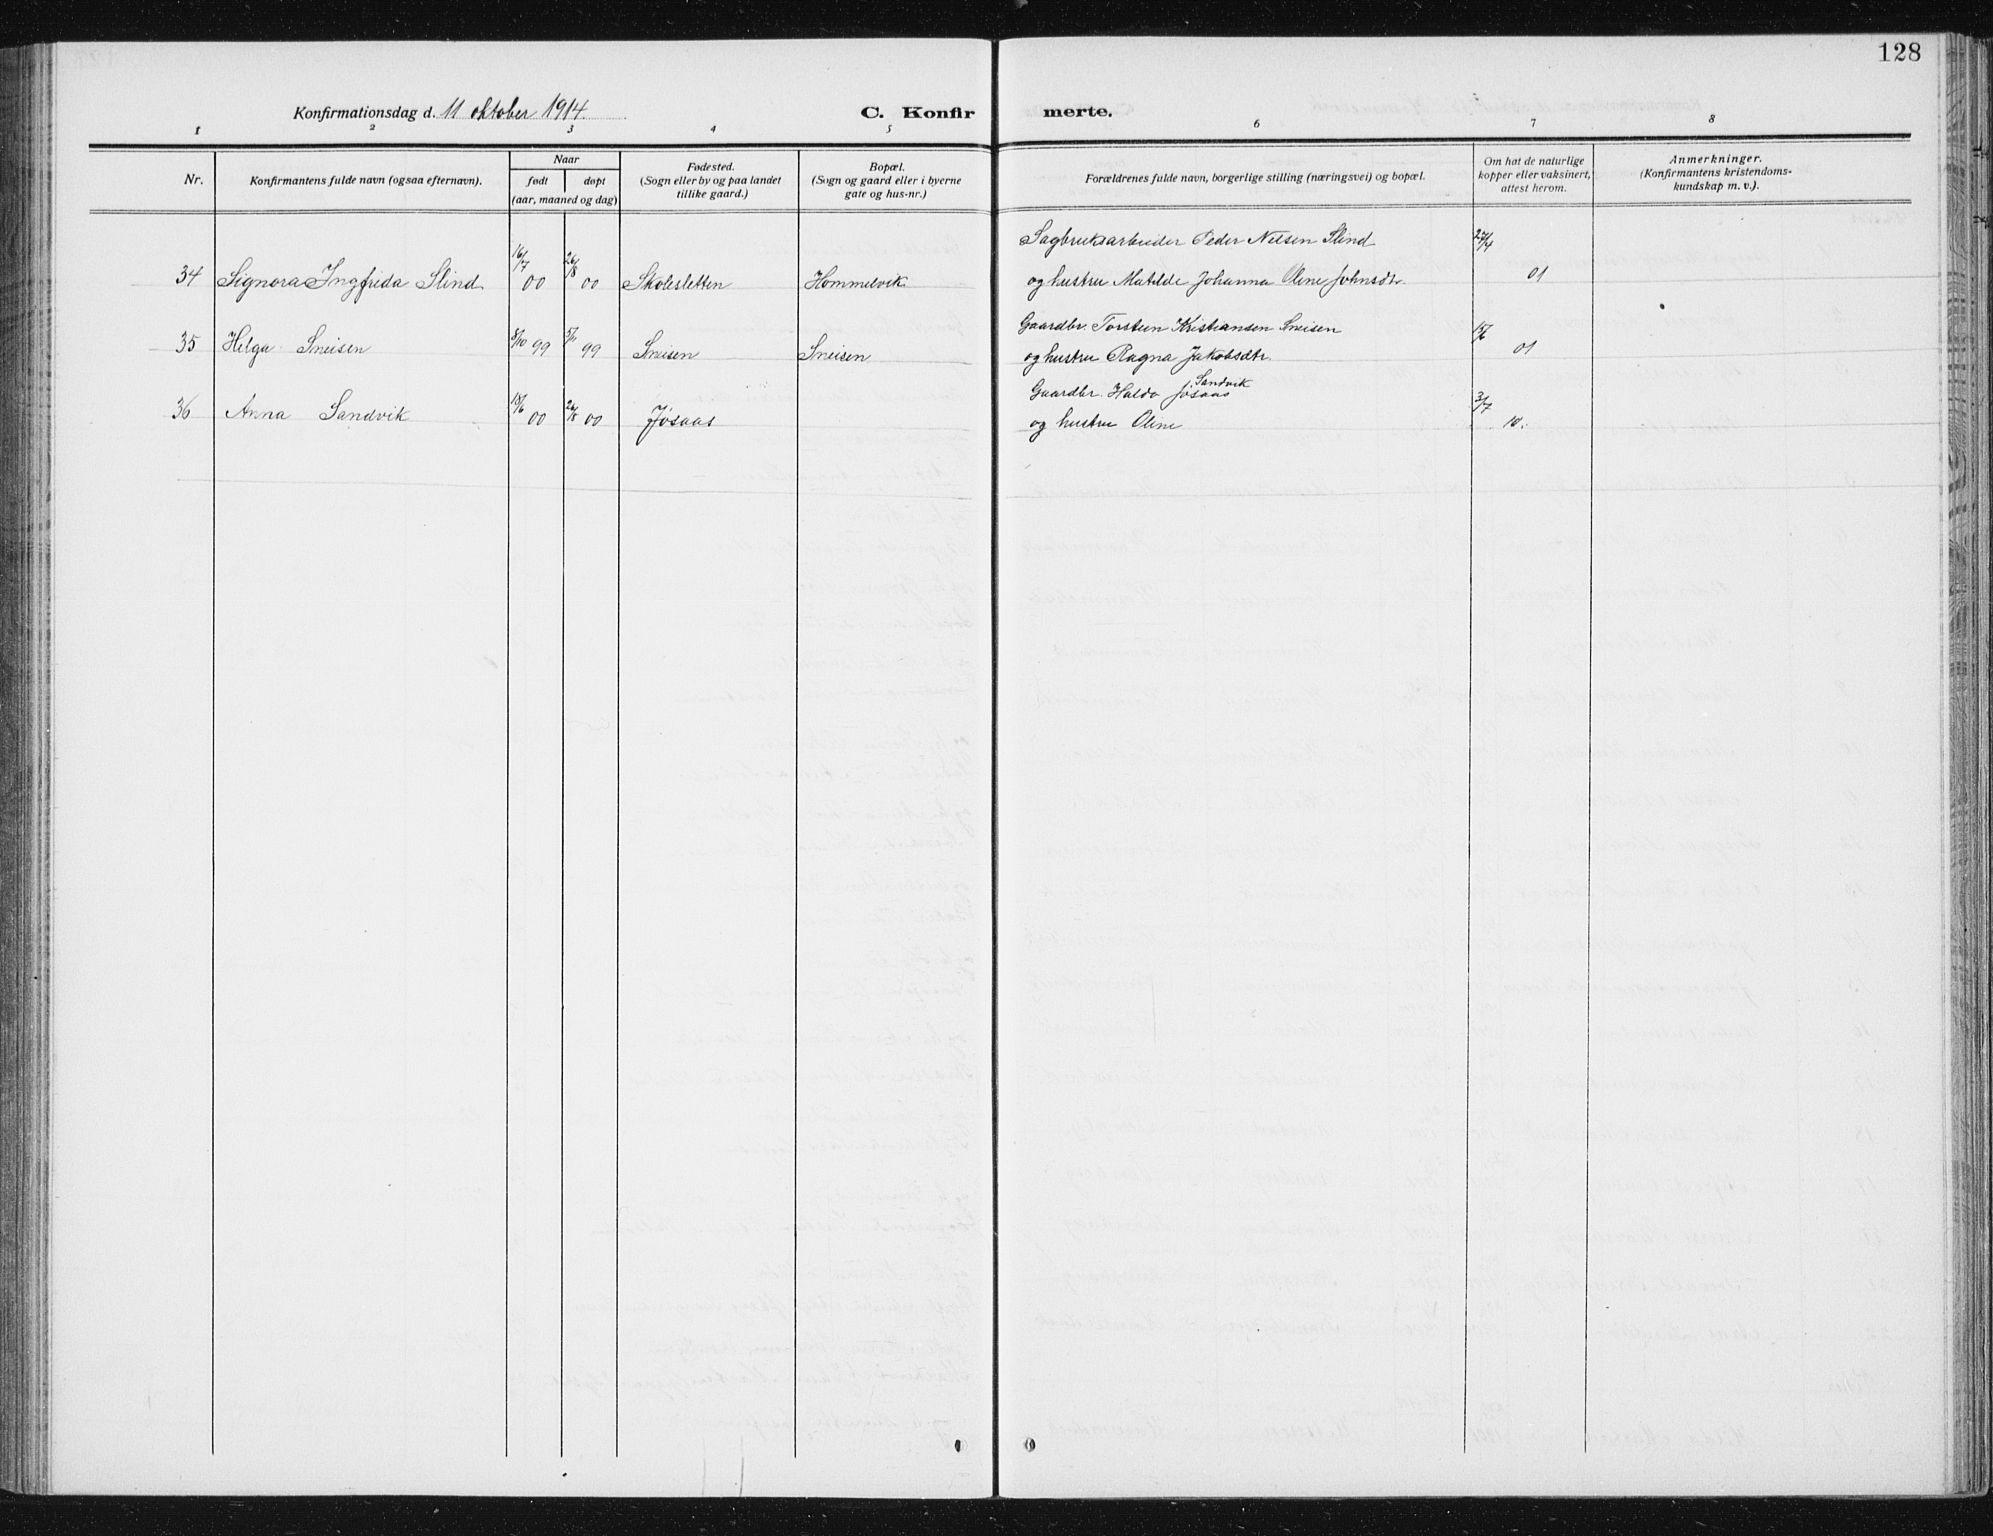 128
Konfirmationsdag d. 11 oktober 1914.
C. Konfir
merte.
1 2 3 4 5 6 7 8
Nr.
Konfirmantens fulde navn (ogsaa efternavn).
Naar
født
døpt
(aar, maaned og dag)
Fødested.
(Sogn eller by og paa landet
tillike gaard.)
Bopæl.
(Sogn og gaard eller i byerne
gate og hus-nr.)
Forældrenes fulde navn, borgerlige stilling (næringsvei) og bopæl.
Om hat de naturlige
kopper eller vaksinert,
attest herom.
Anmerkninger.
(Konfirmantens kristendoms-
kundskap m. v.).
16/7 26/8 Sagbruksarbeider Peder Nilsen Slind 27/4
34 Signora Ingfrida Slind 00 00 Skolesletten Hommelvik og hustru Matilde Johanna Oline Johnsdtr. 01
8/10 5/11 Gaardbr. Torstein Kristiansen Sneisen 15/6
35 Helga Sneisen 99 99 Sneisen Sneisen og hustru Ragna Jakobsdtr. 01
Sandvik
18/6 26/8 Gaardbr. Haldo Jøsaas 3/7
36 Anna Sandvik 00 00 Jøsaas og hustru Oline 10.